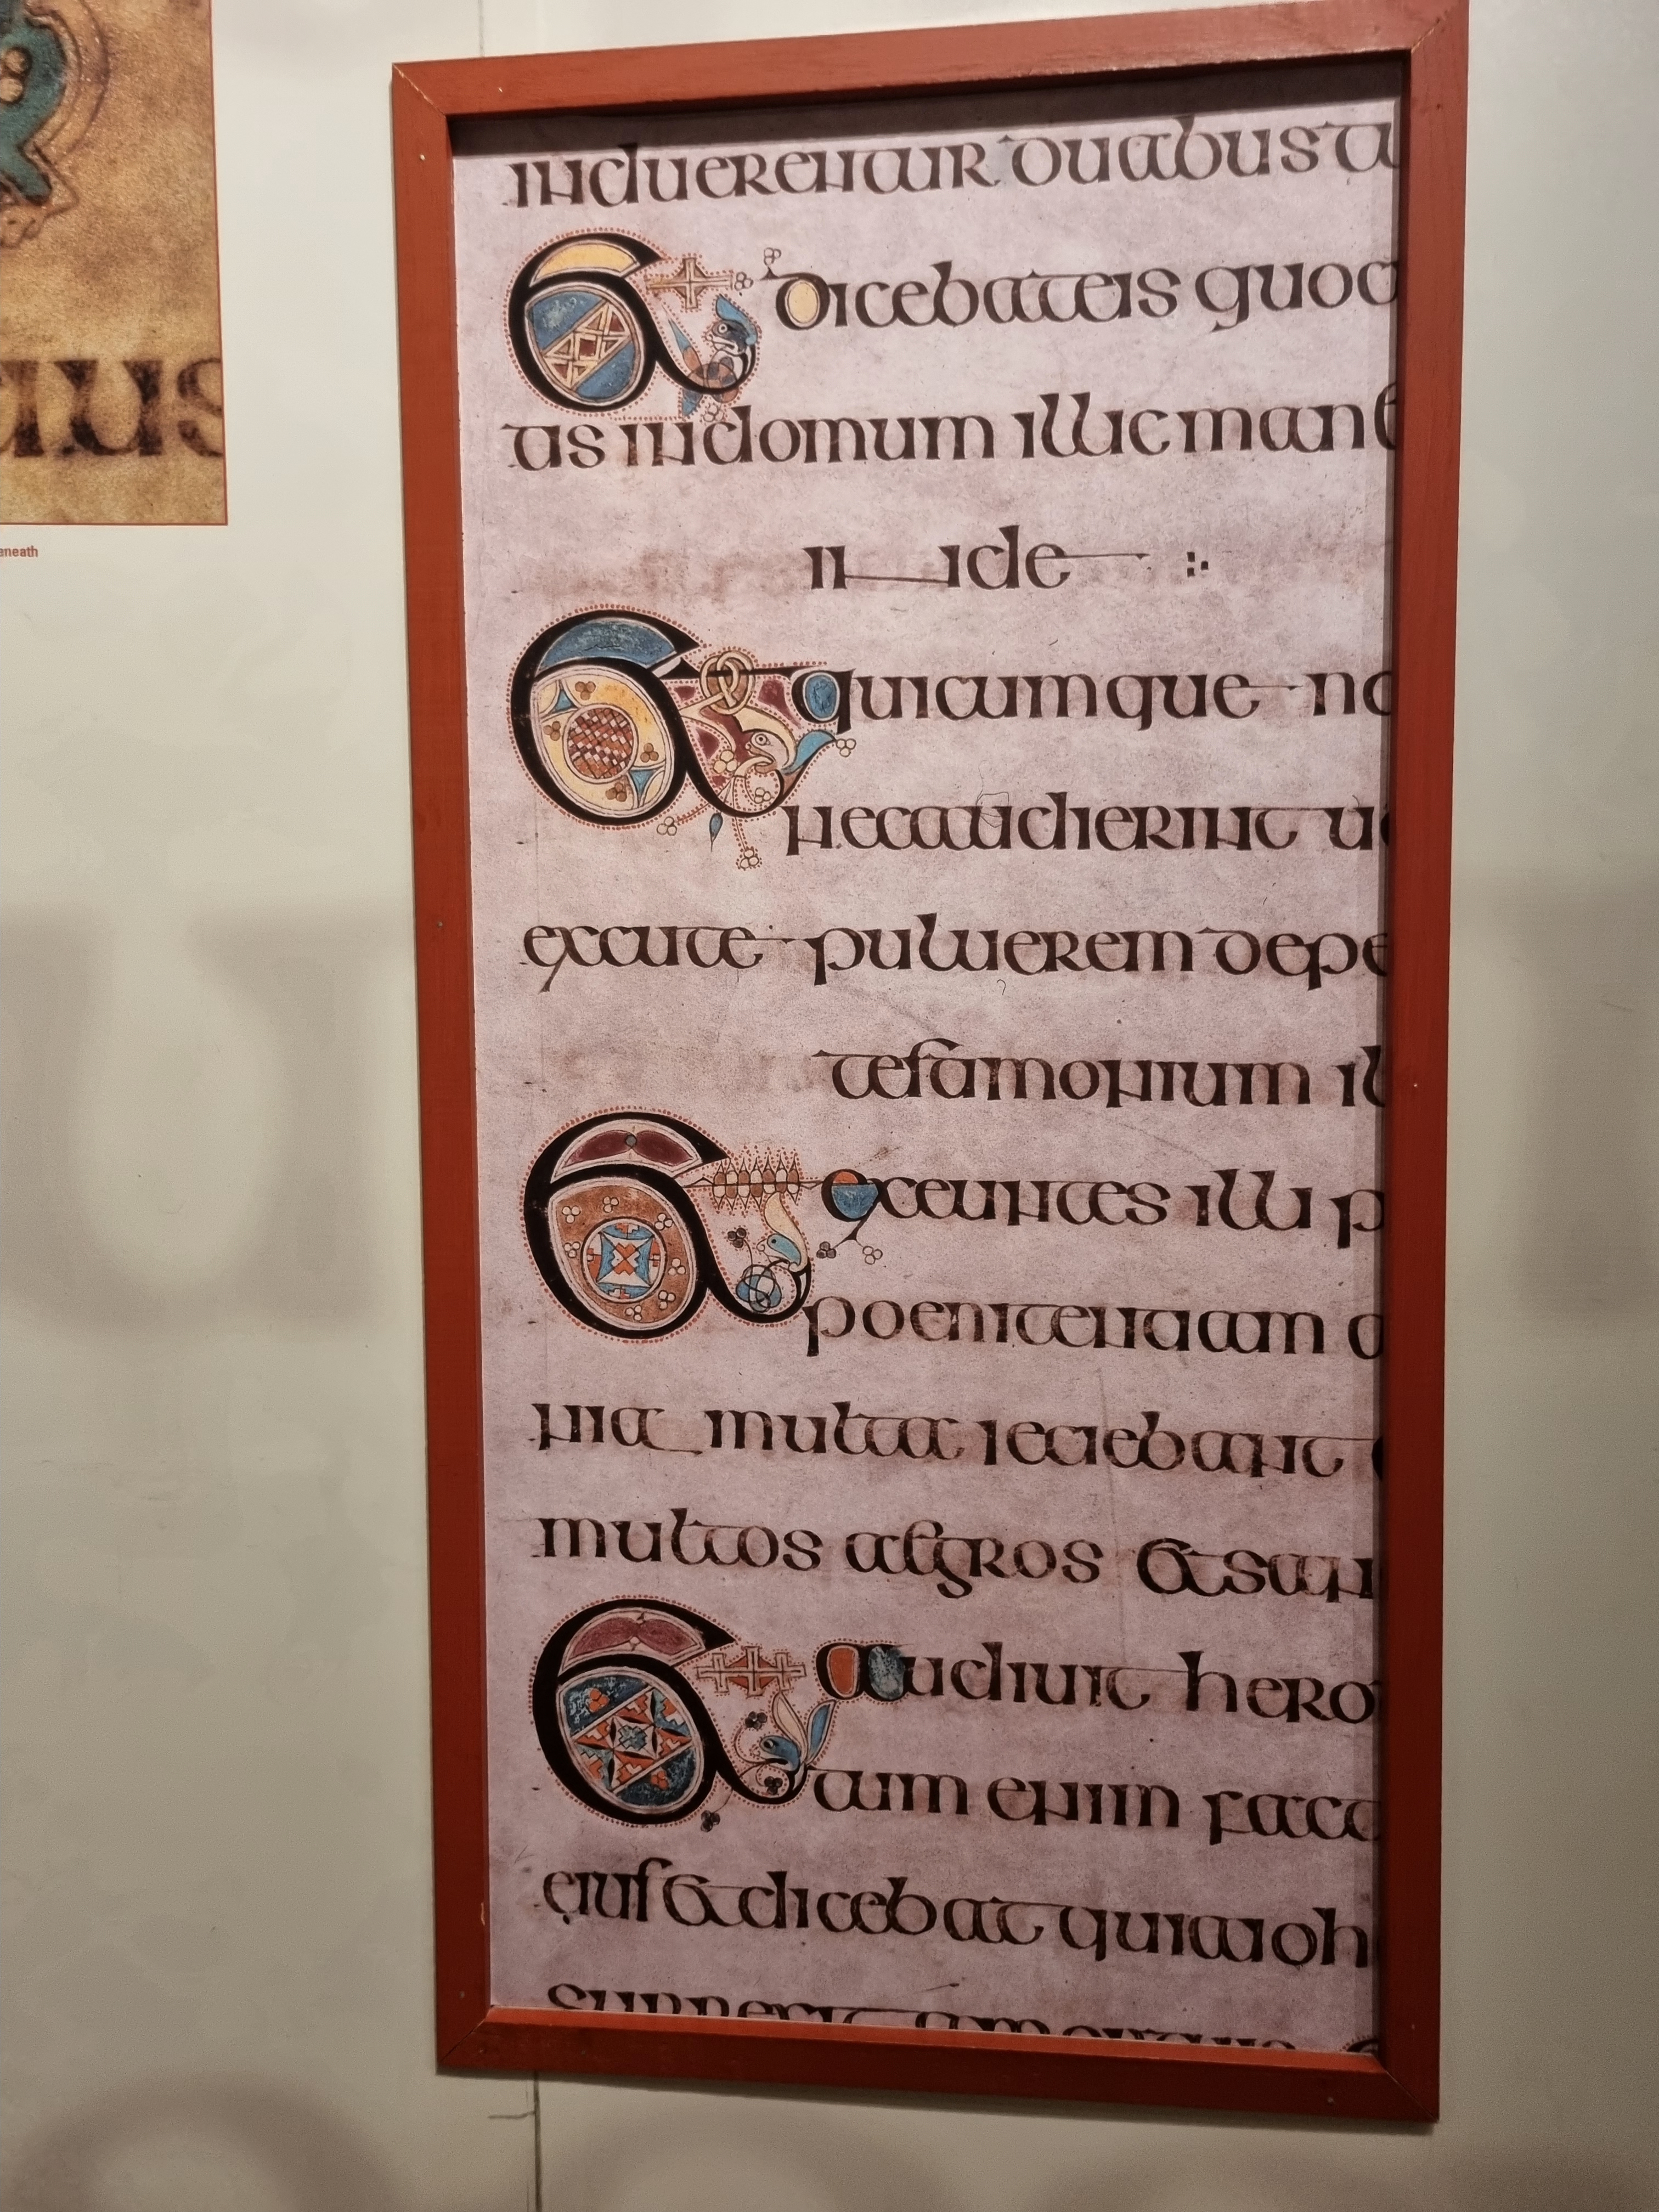 aus
eneath
induerentur duabus tu
Et dicebat eis quod
tis in domum illic mane
inde :·
Et quicumque no
nec audierint uo
excute puluerem depe
testamonium il
Et exeuntes illi p
poenitentiam a
nia multa ieciebant
multos aegros et san
Et audiuit hero
tum enim fact
eius et dicebat quia ioh
surrexit amortuis